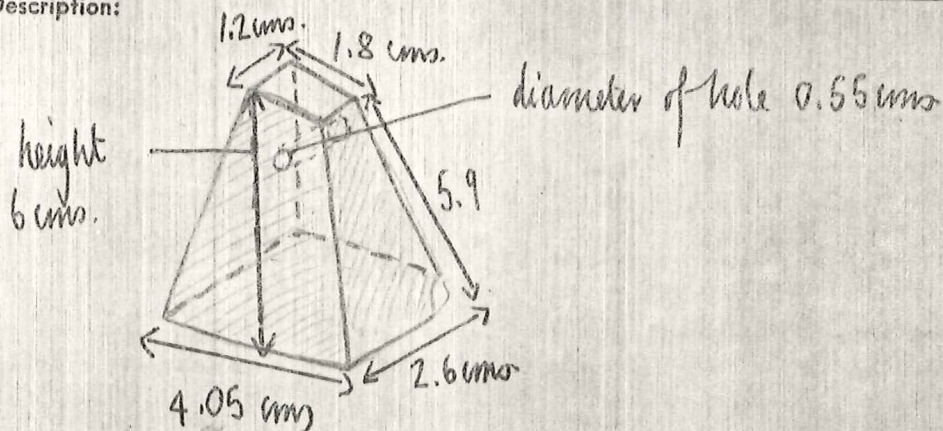 Description:
1.2cms.
1.8 cms.
diameter of hole 0.55cms
height
6cms.
5.9
2.6cms
4.05 cms